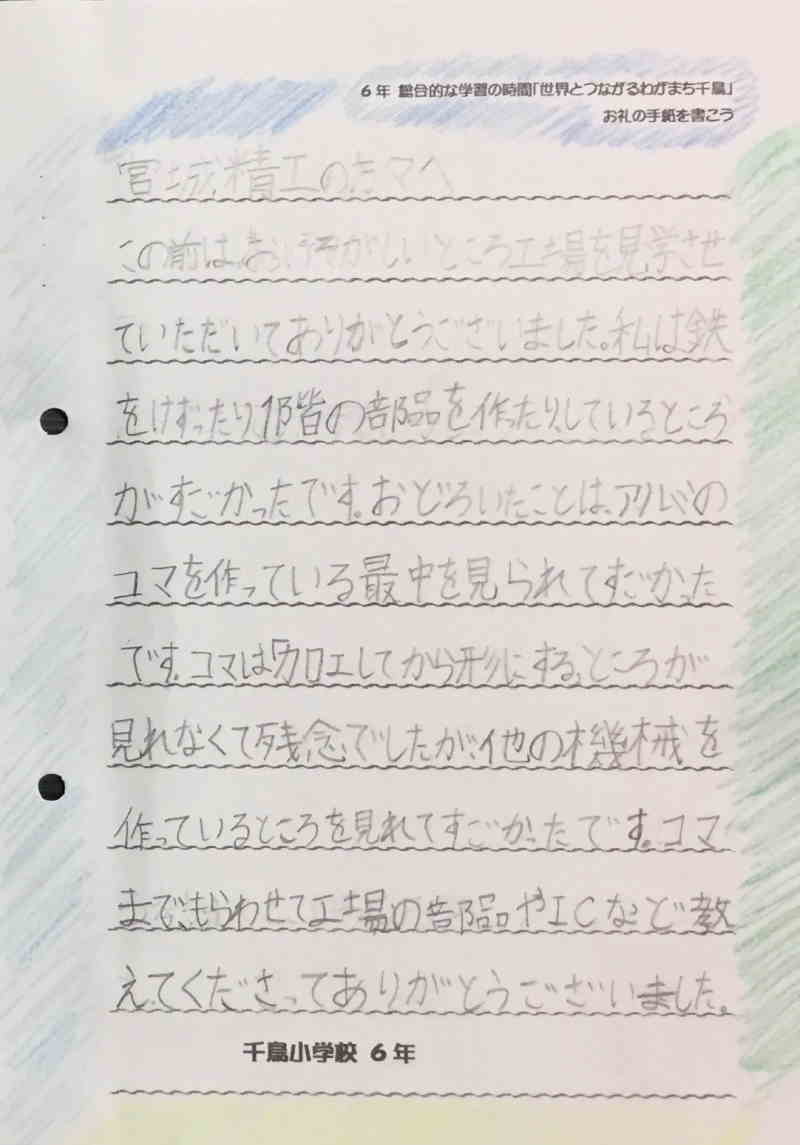 6年 総合的な学習の時間「世界とつながるわがまち千鳥」
お礼の手紙を書こう
宮城精工の方々へ
この前は、おいそがしいところ工場を見学させ
ていただいてありがとうございました。私は鉄
をけずったり、1階の部品を作ったりしているところ
がすごかったです。おどろいたことは、アルミの
コマを作っている最中を見られてすごかった
です。コマは加工してから形にするところが
見れなくて残念でしたが、他の機械を
作っているところを見れてすごかったです。コマ
まで、もらわせて工場の部品やICなど教
えてくださってありがとうございました。
千鳥小学校 6年